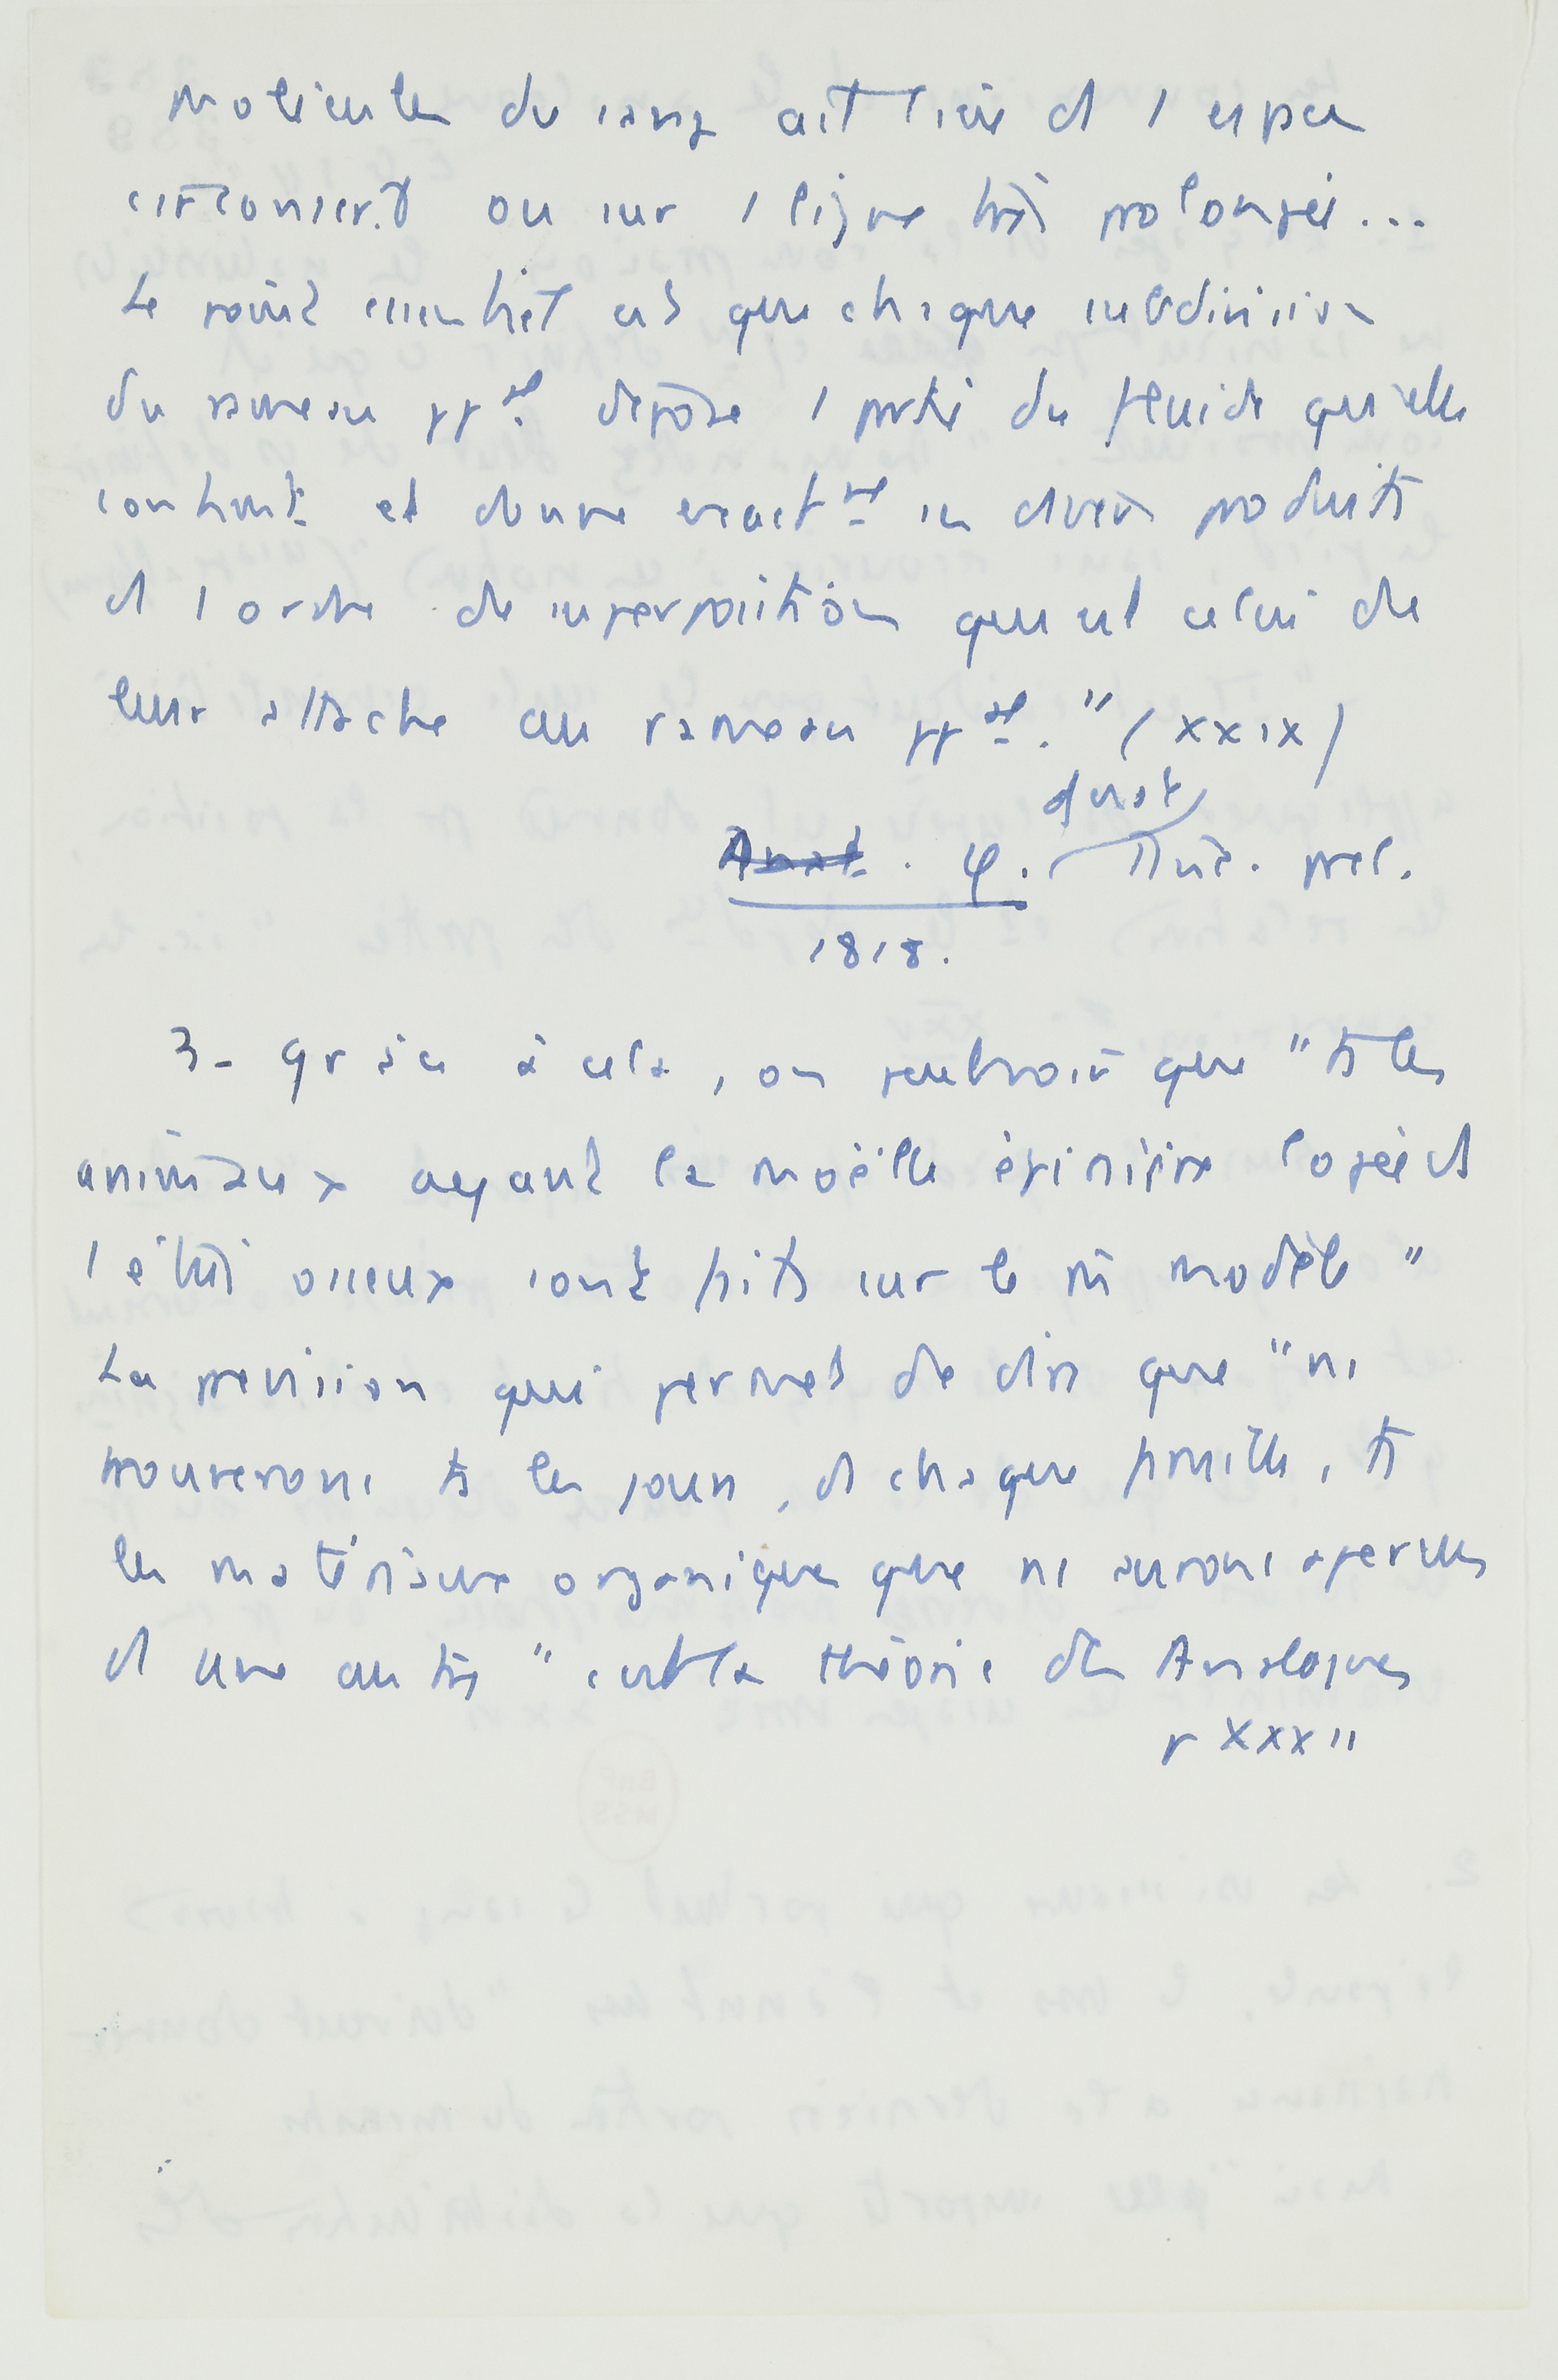 molécules du sang ait lieu ds 1 espace
circonscrit ou sur 1 ligne très prolongée...
Le point essentiel est que chaque subdivision
du rameau ppal dépose 1 partie du fluide qu'elle
contient et donne exactmt ses divers produits
ds l ordre de superposition qui est celui de
leur attache au rameau ppal." (XXIX)
d'anat
φ. Disc. prel.
1818.
3- Grâce à cela, on peut voir que "ts les
animaux ayant la moëlle épinière logée ds
1 étui osseux sont faits sur le m modèle"
La prévision qui permet de dire que "ns
trouverons ts les jours, ds chaque famille, ts
les matériaux organiques que ns aurons aperçus
ds une autre" c'est la théorie des Analogues
p XXXII